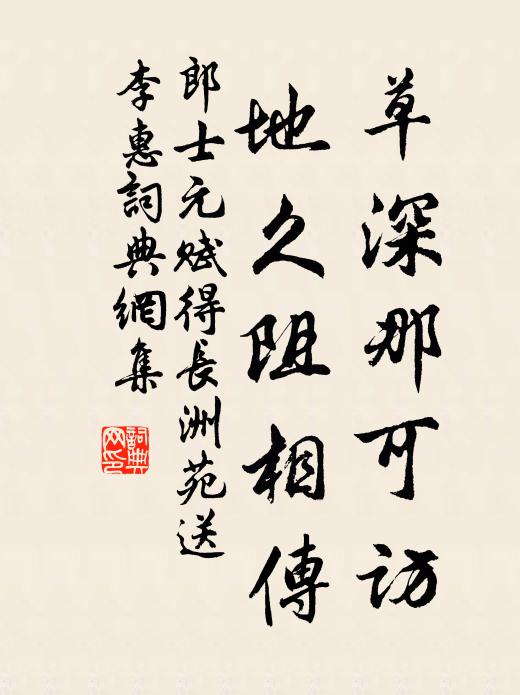 草深那可訪
地久阻相傳
郎士元賦得長洲苑送
李惠詞典網集
詞典
网印